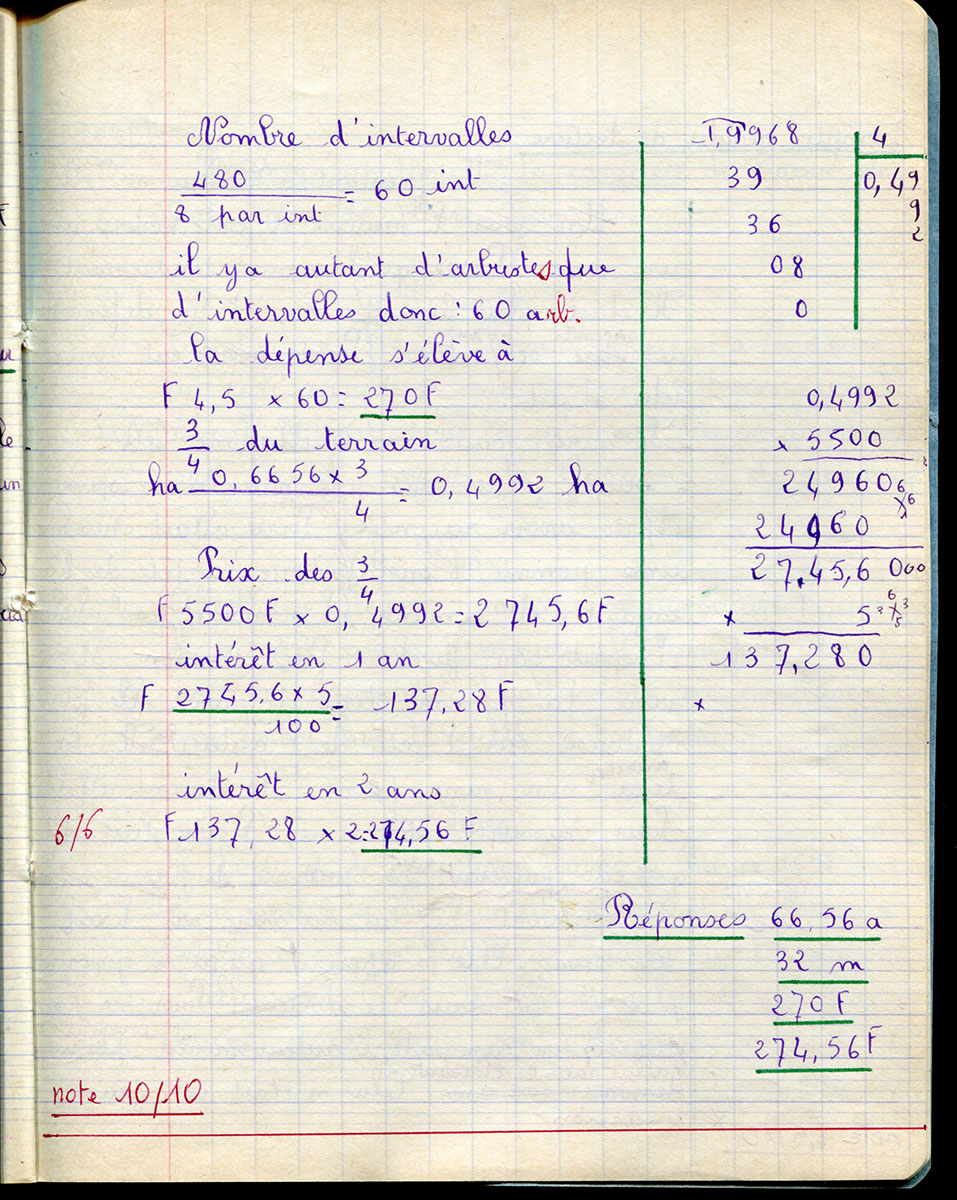 Nombre d'intervalles
480
8 par int
= 60 int
il y a autant d'arbustes que
d'intervalles donc : 60 arb.
la dépense s'élève à
F 4,5 × 60 = 270 F
3/4 du terrain
ha 0,6656 × 3
4
= 0,4992 ha
Prix des 3/4
F 5500 F × 0,4992 = 2 745,6 F
intérêt en 1 an
F 2745,6 × 5
100
= 137,28 F
intérêt en 2 ans
F 137,28 × 2 = 274,56 F
6/6
1,9968
4
39
0,49
9
2
36
08
0
0,4992
× 5500
24960
24960
27.45,6 000
× 5
137,280
×
Réponses 66,56 a
32 m
270 F
274,56 F
note 10/10